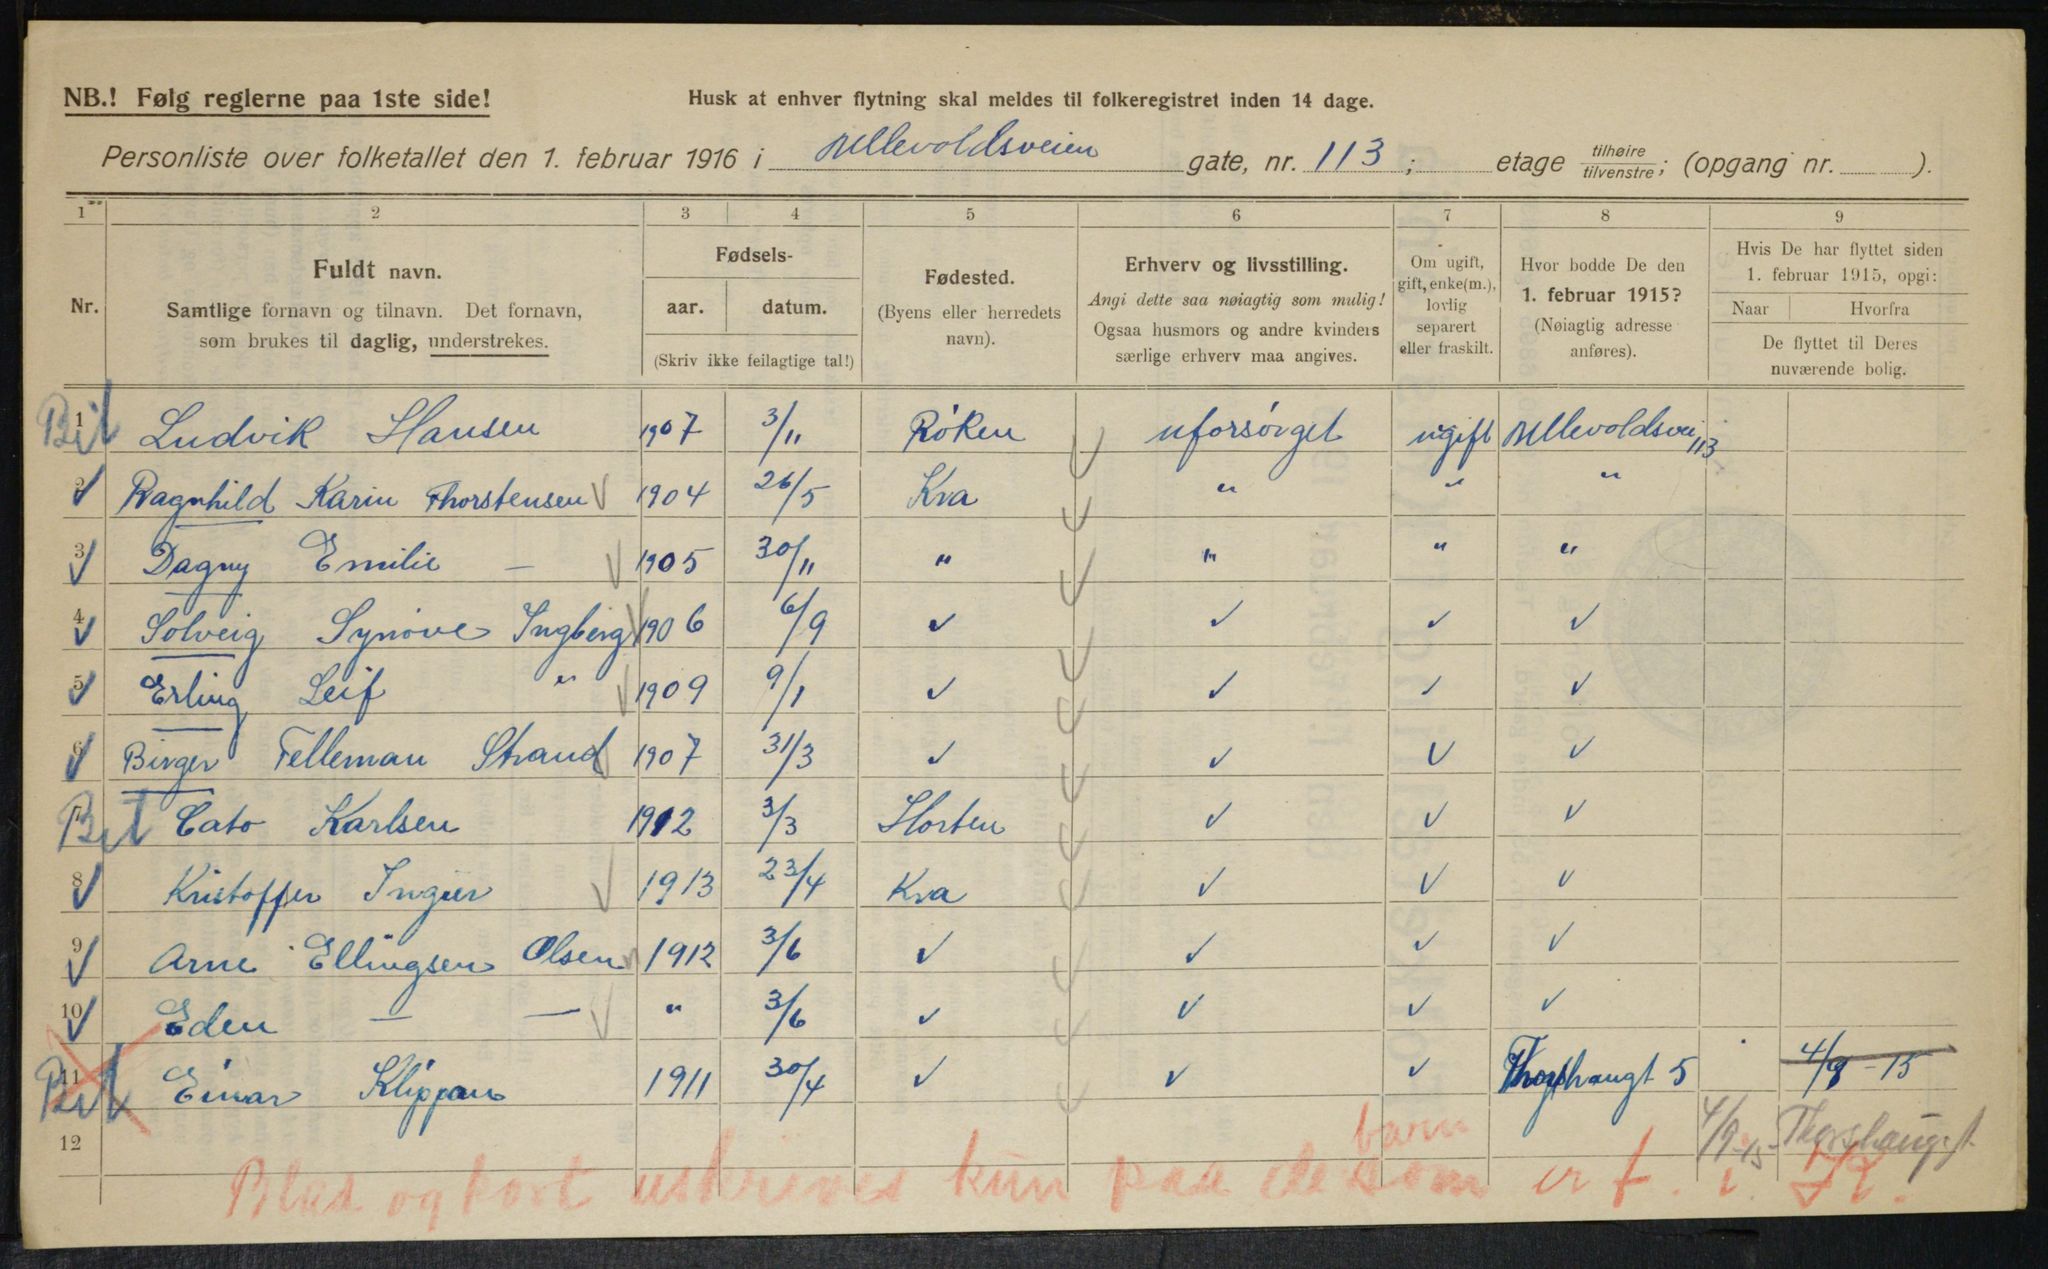 NB.! Følg reglerne paa 1ste side!
Husk at enhver flytning skal meldes til folkeregistret inden 14 dage.
Personliste over folketallet den 1. februar 1916 i Ullevoldsveien gate, nr. 113; etage tilhøire tilvenstre; (opgang nr. ).
1 2 3 4 5 6 7 8 9
Nr.
Fuldt navn.
Samtlige fornavn og tilnavn. Det fornavn,
som brukes til daglig, understrekes.
Fødsels-
aar. datum.
(Skriv ikke feilagtige tal!)
Fødested.
(Byens eller herredets
navn).
Erhverv og livsstilling.
Angi dette saa nøiagtig som mulig!
Ogsaa husmors og andre kvinders
særlige erhverv maa angives.
Om ugift,
gift, enke(m.),
lovlig
separert
eller fraskilt.
Hvor bodde De den
1. februar 1915?
(Nøiagtig adresse
anføres).
Hvis De har flyttet siden
1. februar 1915, opgi:
Naar Hvorfra
De flyttet til Deres
nuværende bolig.
1 Bit Ludvik Hansen 1907 3/11 Røken uforsørget ugift Ullevoldsvei 113
2 Ragnhild Karin Thorstensen 1904 26/5 Kra " " "
3 Dagny Emilie — 1905 30/11 " " " "
4 Solveig Synøve Ingberg 1906 6/9 ✓ ✓ ✓ ✓
5 Erling Leif " 1909 9/1 ✓ ✓ ✓ ✓
6 Birger Telleman Strand 1907 31/3 ✓ ✓ ✓ ✓
7 Bit Cato Karlsen 1912 3/3 Horten ✓ ✓ ✓
8 Kristoffer Ingier 1913 23/4 Kra ✓ ✓ ✓
9 Arne Ellingsen Olsen 1912 3/6 ✓ ✓ ✓ ✓
10 Eden — — " 3/6 ✓ ✓ ✓ ✓
11 Bit Einar Klippan 1911 30/4 ✓ ✓ ✓ Thorshaugt 5 4/9-15
12 4/9-15 Thorshaugt
barn
Blad og kort utskrives kun paa de som er f. i